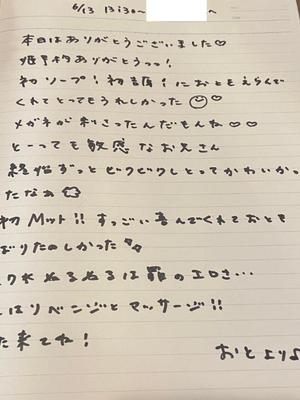 6/13 13:30~ へ
本日はありがとうございました♡
姫予約ありがとうっっ!
初ソープ!初 !におとをえらんで
くれてとってもうれしかった
メガネがささったんだもんね♡♡
とーっても敏感なお兄さん
ずっとビクビクしとってかわいかっ
たなぁ
初Mット!!すっごい喜んでくれておとも
ばりたのしかった
ぬるぬるは罪のエロさ…
はリベンジとマッサージ!!
た来てね!
おとより♪